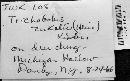 TWR 108
Trichobolus
zukalii (Heim)
Kimbr.
on deer dung
Michigan Hollow
Danby, N.Y. 8-24-66